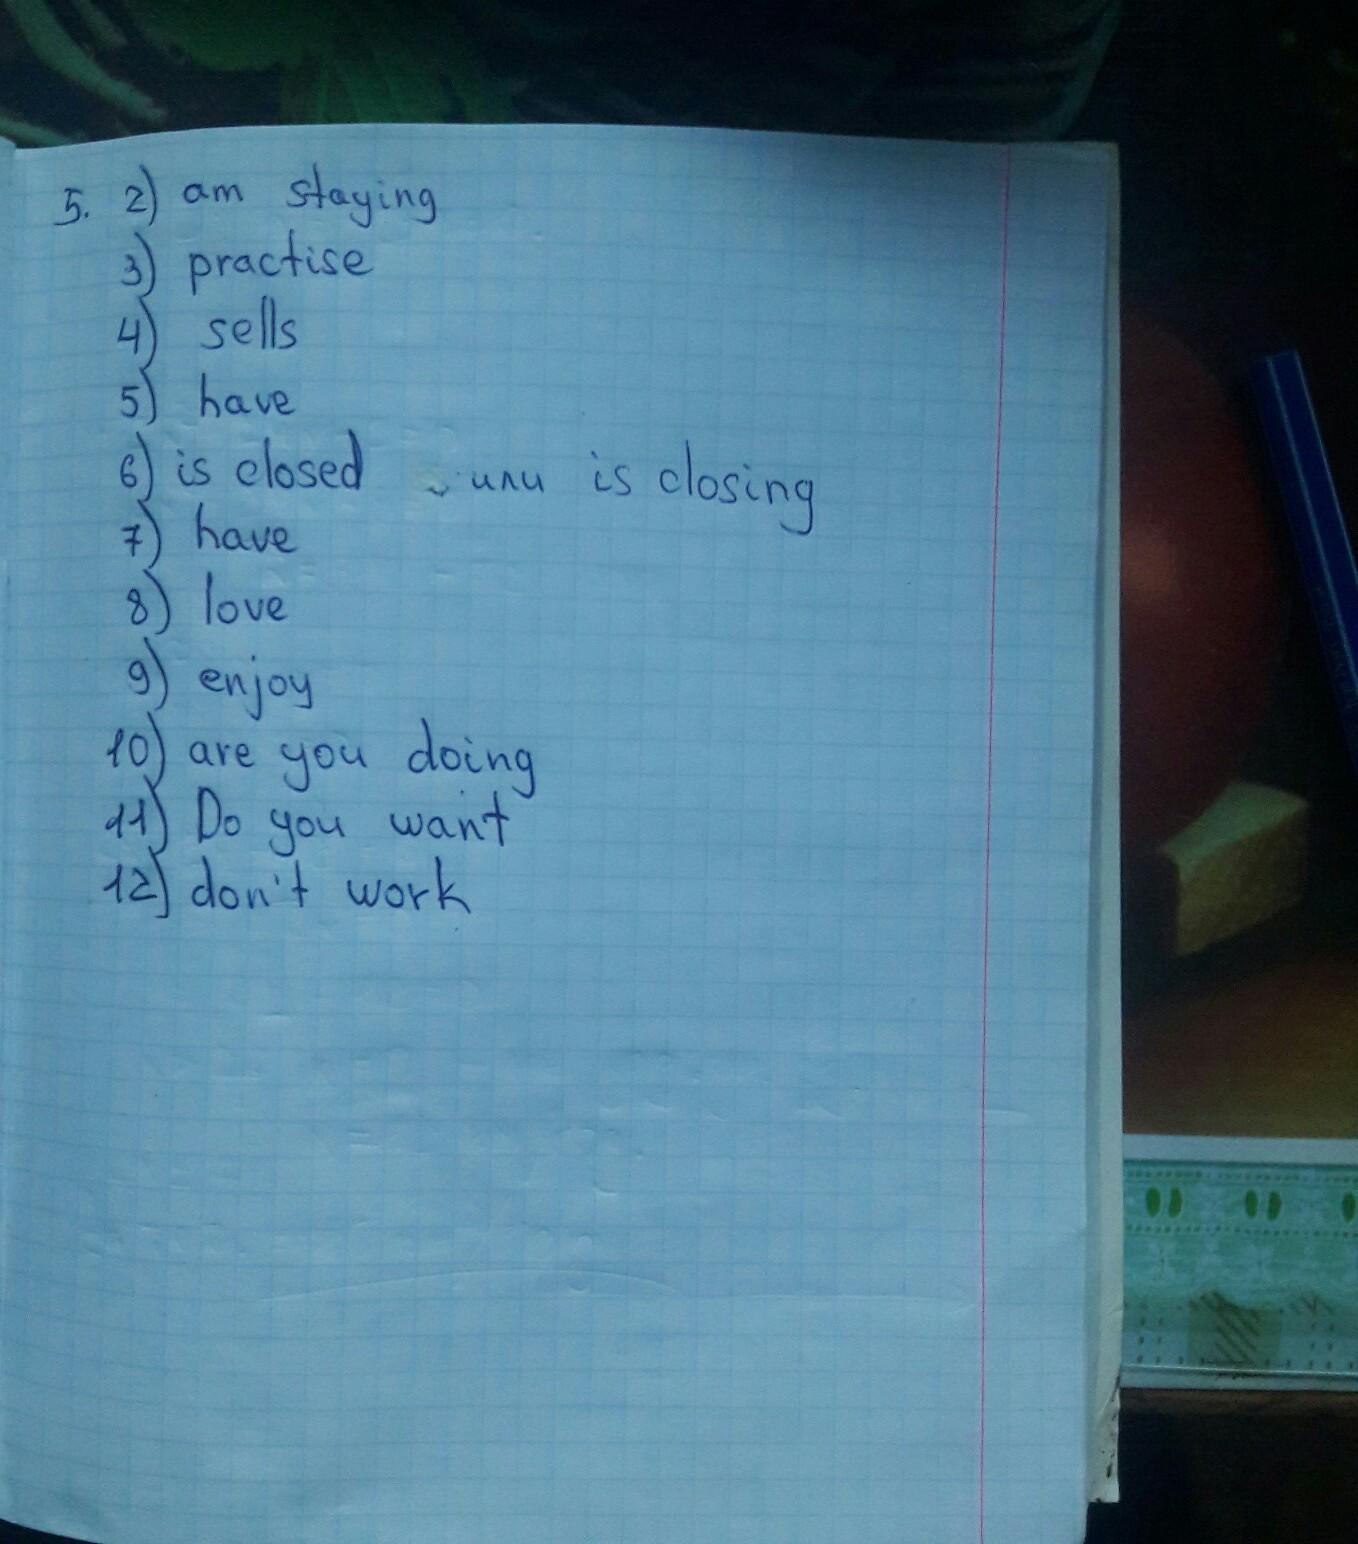 5. 2) am staying
3) practise
4) sells
5) have
6) is closed или is closing
7) have
8) love
9) enjoy
10) are you doing
11) Do you want
12) don't work